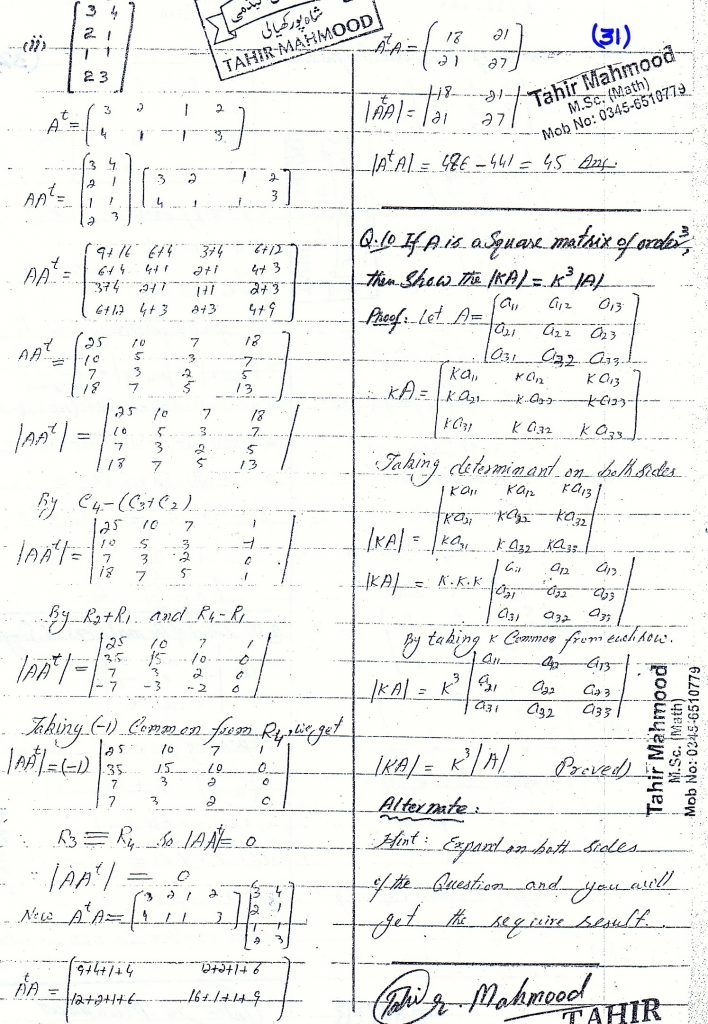 (ii) [3 4
2 1
1 1
2 3]
شاہ پور کھیالی
TAHIR MAHMOOD
Aᵗ = [3 2 1 2
4 1 1 3]
AAᵗ = [3 4
2 1
1 1
2 3] [3 2 1 2
4 1 1 3]
AAᵗ = [9+16 6+4 3+4 6+12
6+4 4+1 2+1 4+3
3+4 2+1 1+1 2+3
6+12 4+3 2+3 4+9]
AAᵗ = [25 10 7 18
10 5 3 7
7 3 2 5
18 7 5 13]
|AAᵗ| = |25 10 7 18
10 5 3 7
7 3 2 5
18 7 5 13|
By C₄-(C₃+C₂)
|AAᵗ| = |25 10 7 1
10 5 3 -1
7 3 2 0
18 7 5 1|
By R₂+R₁ and R₄-R₁
|AAᵗ| = |25 10 7 1
35 15 10 0
7 3 2 0
-7 -3 -2 0|
Taking (-1) Common from R₄, we get
|AAᵗ| = (-1) |25 10 7 1
35 15 10 0
7 3 2 0
7 3 2 0|
R₃ ≡ R₄ so |AAᵗ| = 0
|AAᵗ| = 0
Now AᵗA = [3 2 1 2
4 1 1 3] [3 4
2 1
1 1
2 3]
AᵗA = [9+4+1+4 12+2+1+6
12+2+1+6 16+1+1+9]
(31)
AᵗA = [18 21
21 27]
Tahir Mahmood
M.Sc. (Math)
Mob No: 0345-6510779
|AᵗA| = |18 21
21 27|
|AᵗA| = 486 - 441 = 45 Ans.
Q.10 If A is a Square matrix of order 3,
then Show the |KA| = K³|A|
Proof: Let A = [a₁₁ a₁₂ a₁₃
a₂₁ a₂₂ a₂₃
a₃₁ a₃₂ a₃₃]
KA = [Ka₁₁ Ka₁₂ Ka₁₃
Ka₂₁ Ka₂₂ Ka₂₃
Ka₃₁ Ka₃₂ Ka₃₃]
Taking determinant on both sides
|KA| = |Ka₁₁ Ka₁₂ Ka₁₃
Ka₂₁ Ka₂₂ Ka₃₂
Ka₃₁ Ka₃₂ Ka₃₃|
|KA| = K.K.K |a₁₁ a₁₂ a₁₃
a₂₁ a₂₂ a₂₃
a₃₁ a₃₂ a₃₃|
By taking K Common from each row.
|KA| = K³ |a₁₁ a₁₂ a₁₃
a₂₁ a₂₂ a₂₃
a₃₁ a₃₂ a₃₃|
|KA| = K³|A| (Proved)
Tahir Mahmood
M.Sc. (Math)
Mob No: 0345-6510779
Alternate:
Hint: Expand on both sides
of the Question and you will
get the require result.
Tahir Mahmood
TAHIR